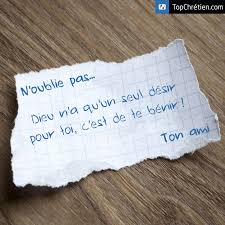 TopChrétien.com
N'oublie pas...
Dieu n'a qu'un seul désir
pour toi, c'est de te bénir !
Ton ami